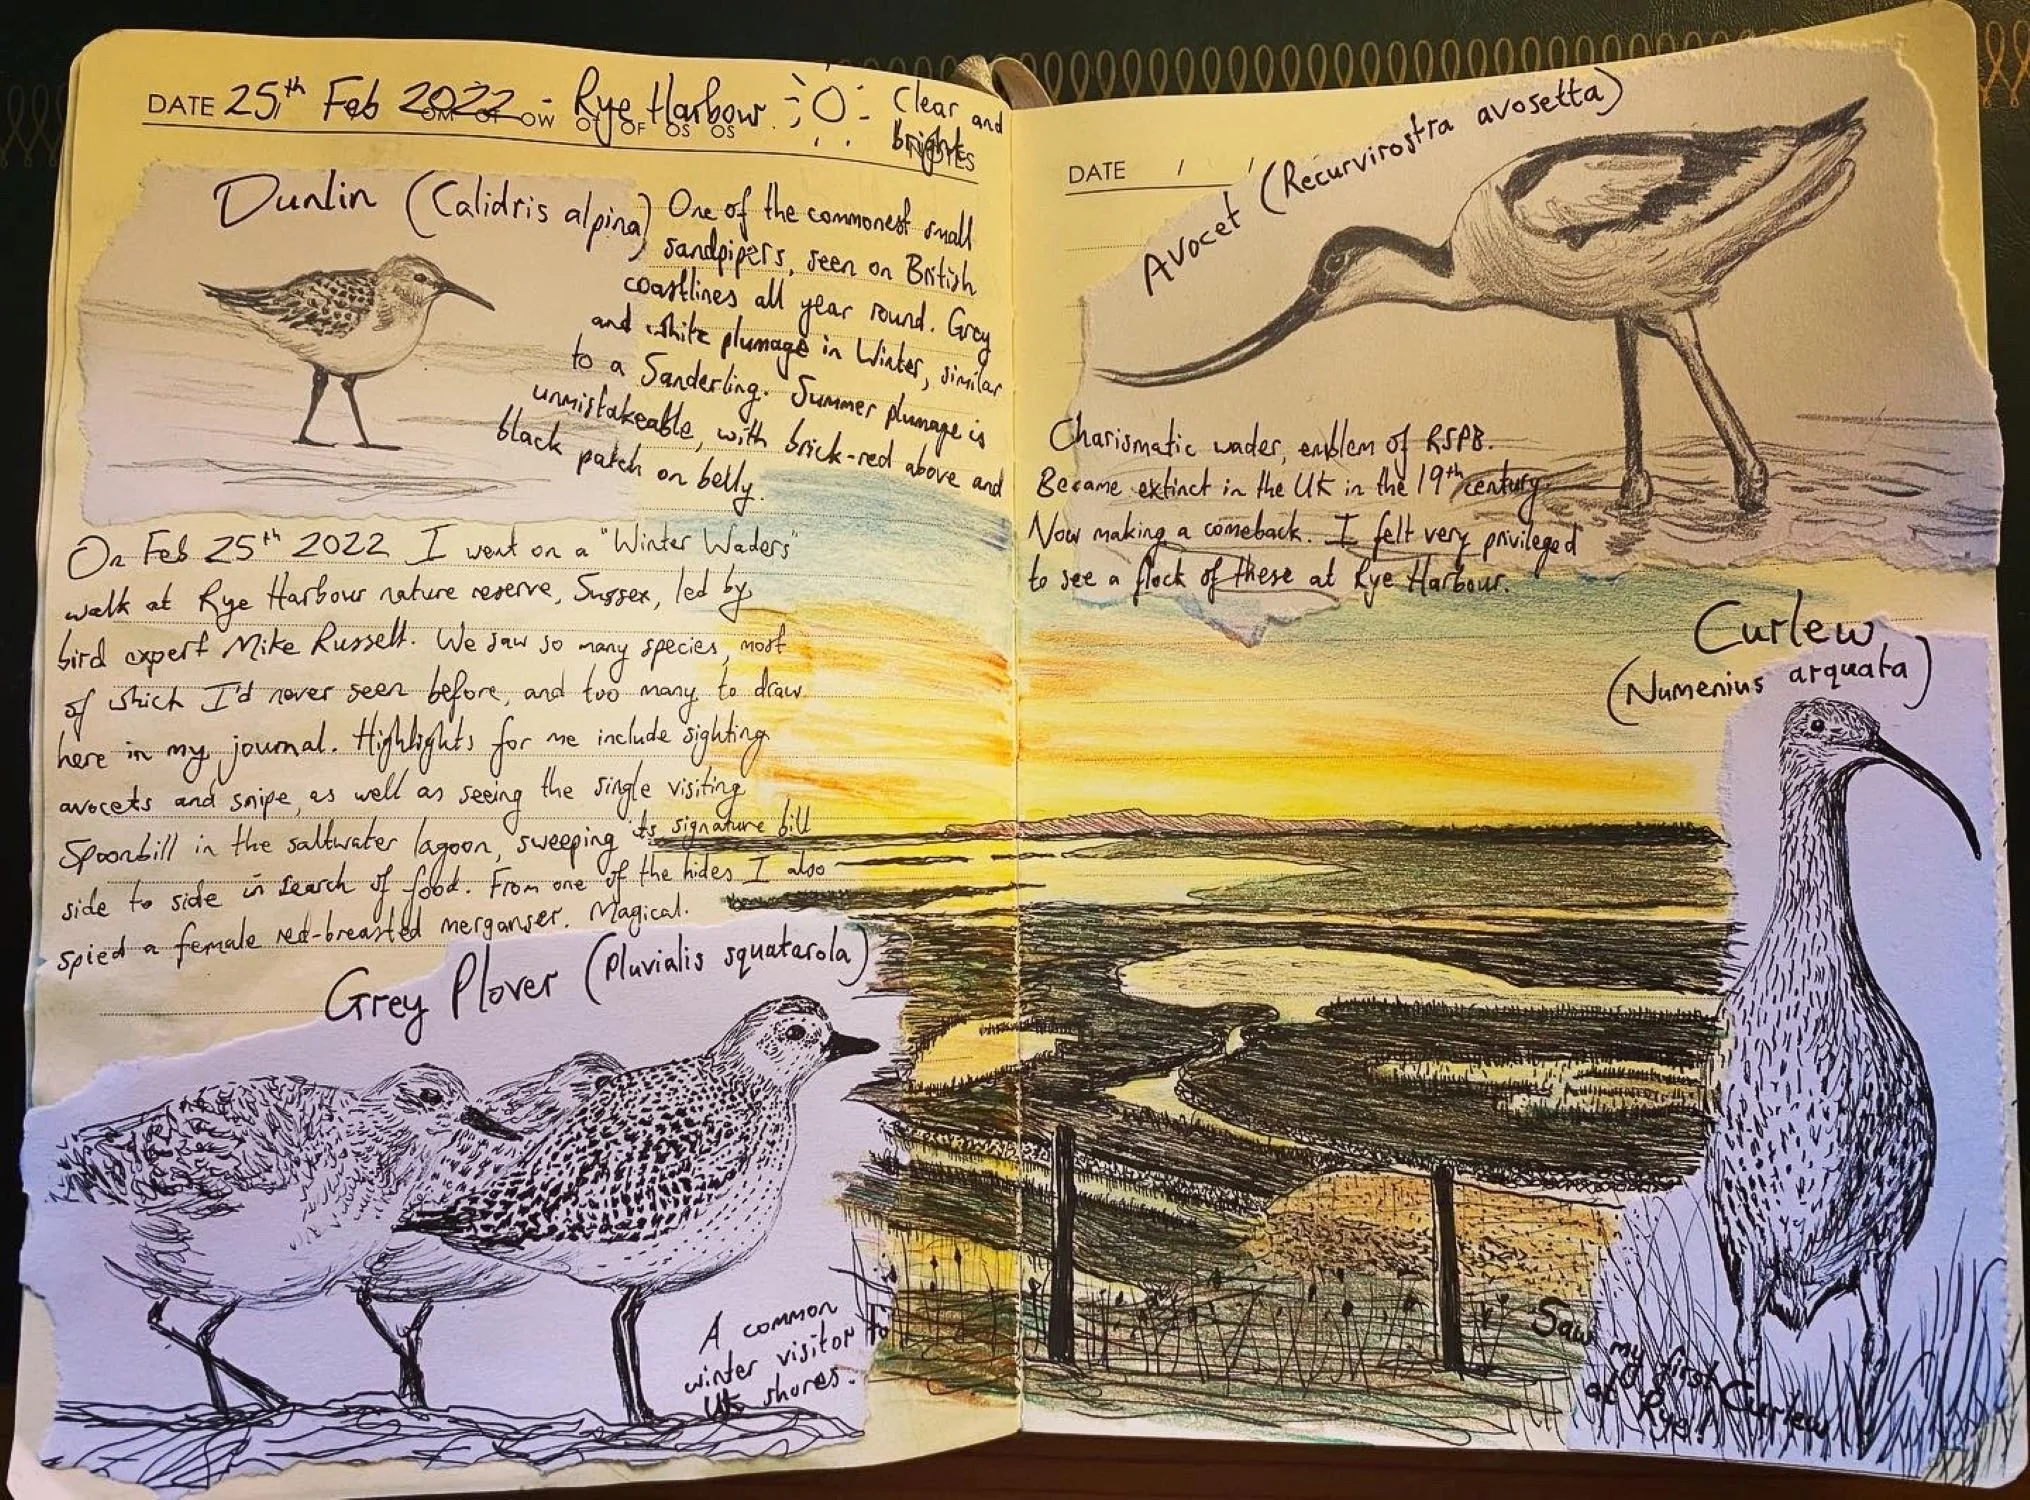 DATE 25th Feb 2022 - Rye Harbour. Clear and
bright
Dunlin (Calidris alpina)
One of the commonest small
sandpipers, seen on British
coastlines all year round. Grey
and white plumage in Winter, similar
to a Sanderling. Summer plumage is
unmistakeable, with brick-red above and
black patch on belly.
On Feb 25th 2022 I went on a "Winter Waders"
walk at Rye Harbour nature reserve, Sussex, led by
bird expert Mike Russell. We saw so many species, most
of which I'd never seen before, and too many to draw
here in my journal. Highlights for me include sighting
avocets and snipe, as well as seeing the single visiting
Spoonbill in the saltwater lagoon, sweeping its signature bill
side to side in search of food. From one of the hides I also
spied a female red-breasted merganser. Magical.
Grey Plover (Pluvialis squatarola)
A common
winter visitor to
UK shores.
DATE / /
Avocet (Recurvirostra avosetta)
Charismatic wader, emblem of RSPB.
Became extinct in the UK in the 19th century.
Now making a comeback. I felt very privileged
to see a flock of these at Rye Harbour.
Curlew
(Numenius arquata)
Saw my first Curlew
at Rye!